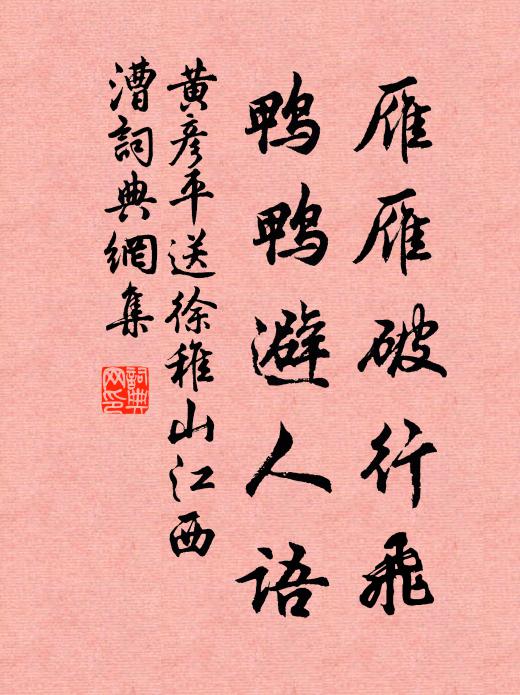 雁雁破行飛
鴨鴨避人语
黄彦平送徐稚山江西
漕詞典網集
詞典网印